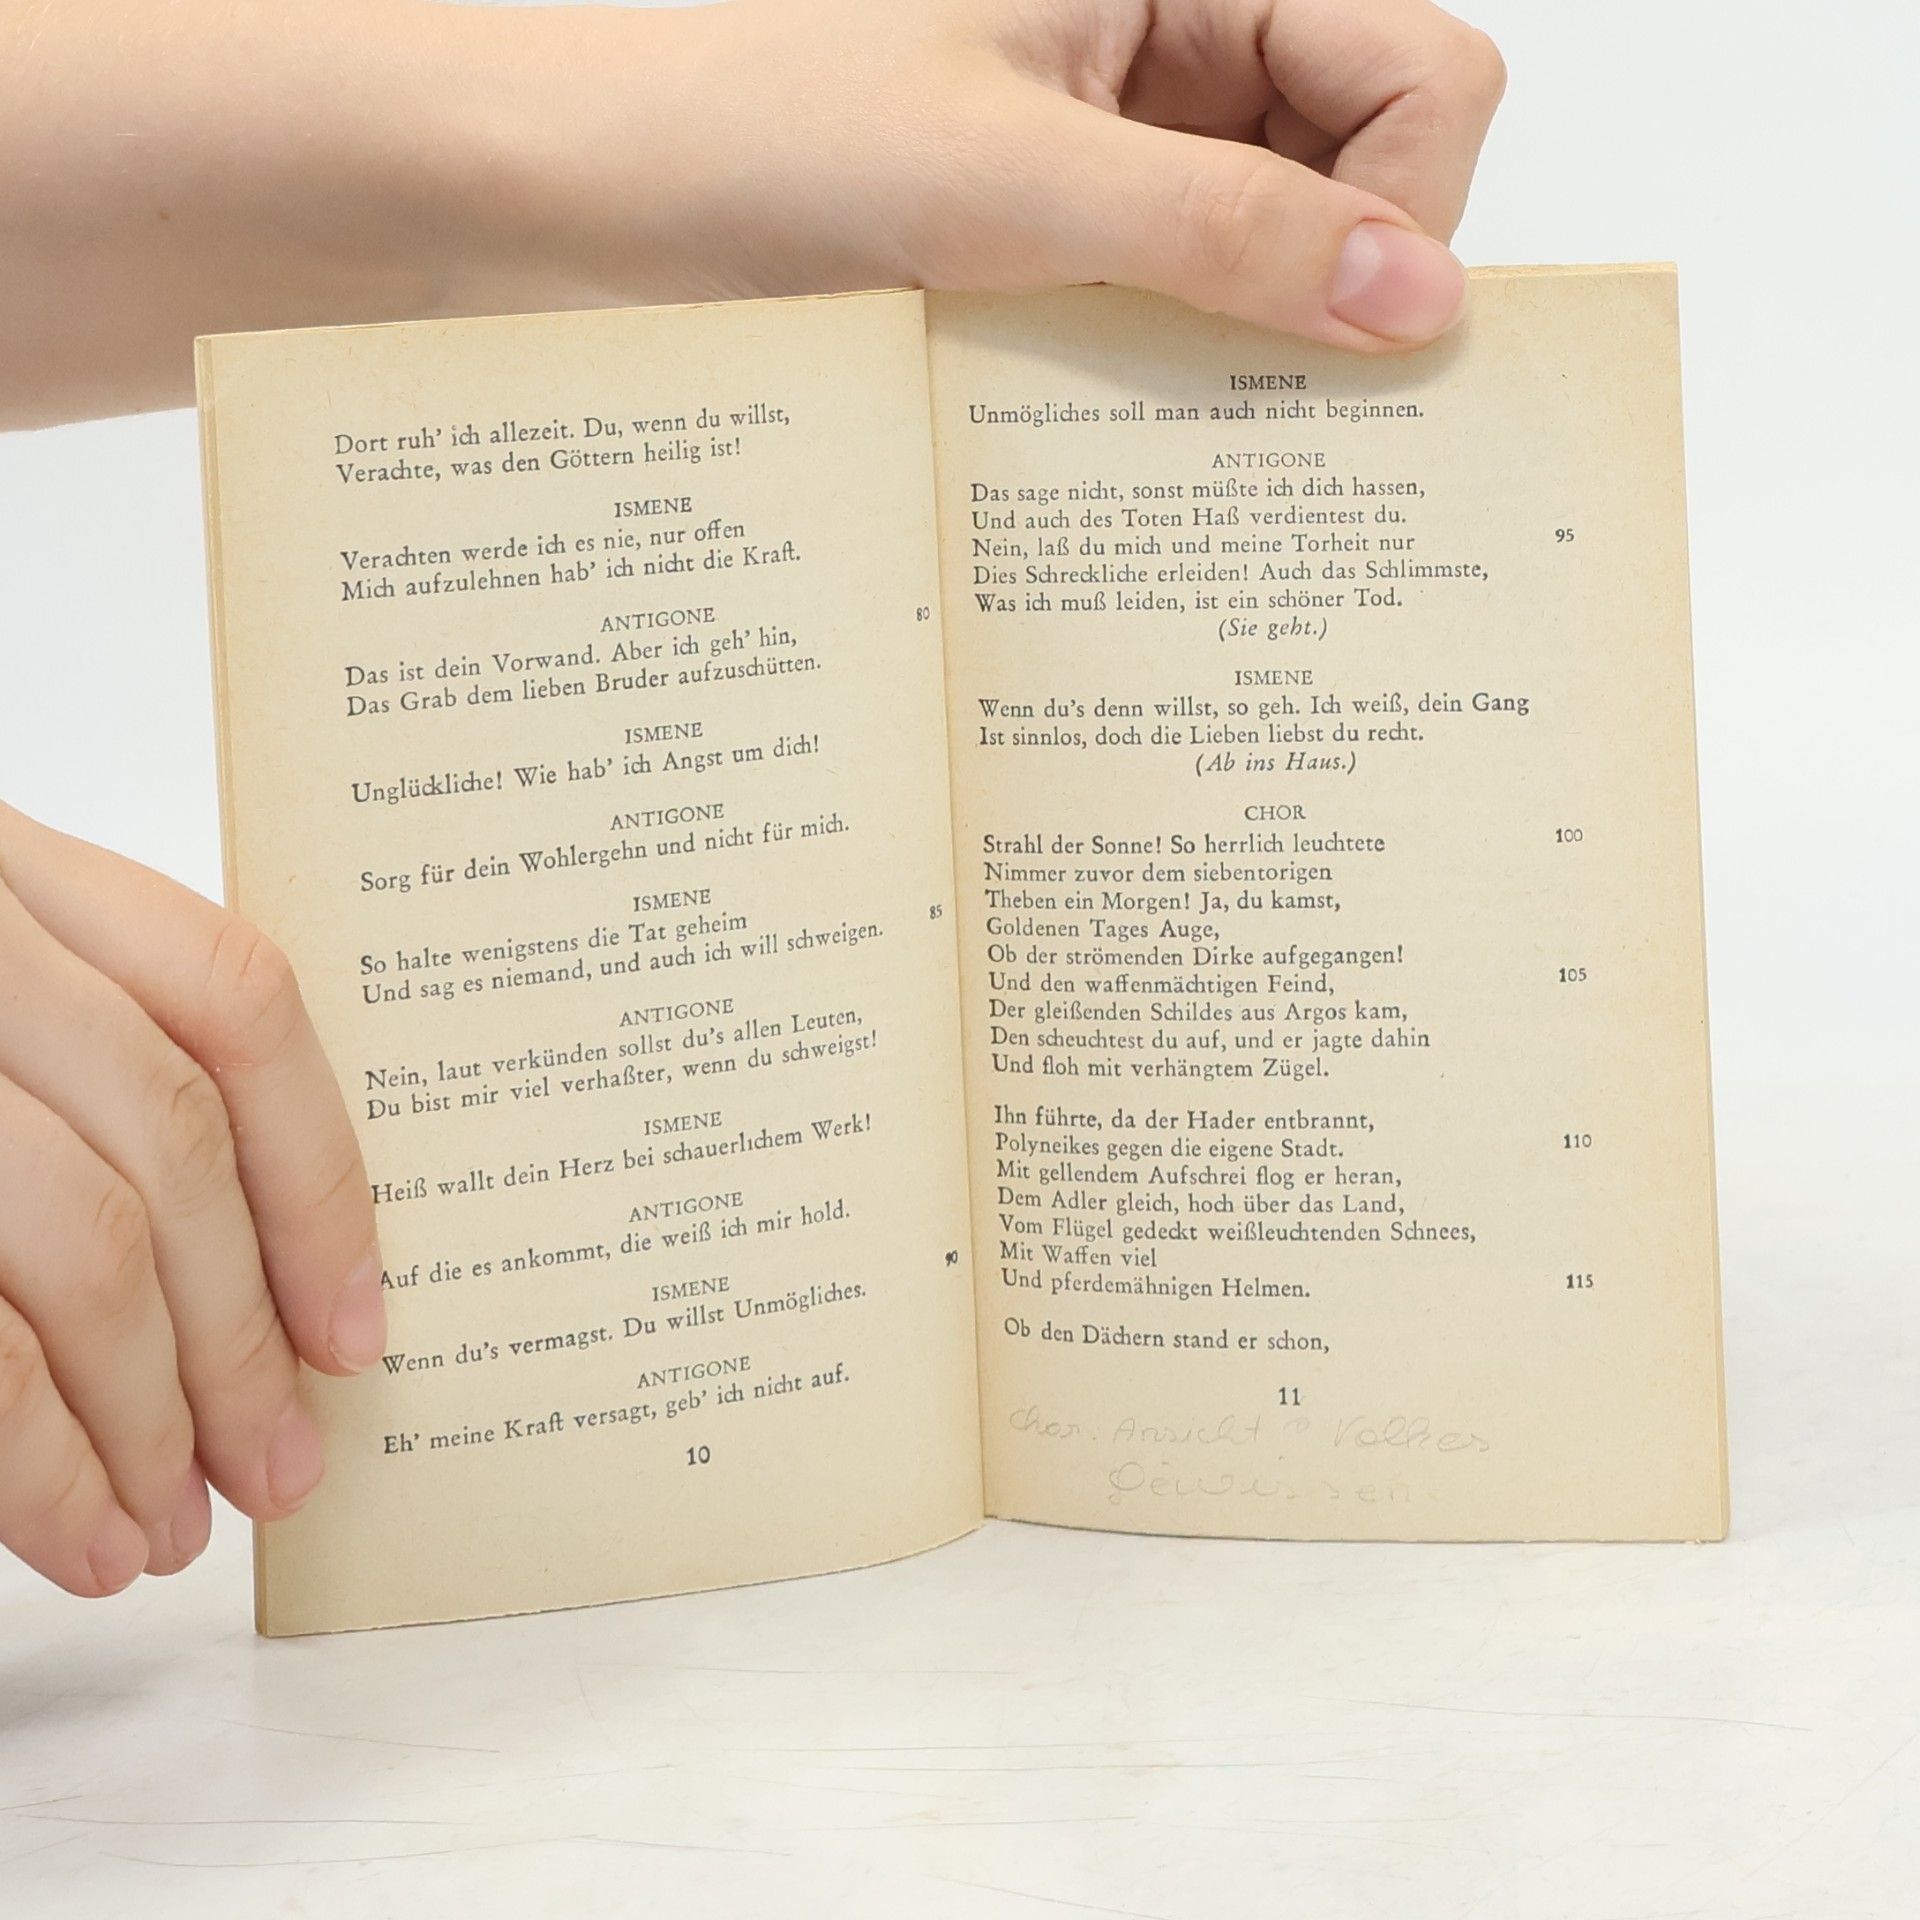 Dort ruh' ich allezeit. Du, wenn du willst,
Verachte, was den Göttern heilig ist!
ISMENE
Verachten werde ich es nie, nur offen
Mich aufzulehnen hab' ich nicht die Kraft.
ANTIGONE
80
Das ist dein Vorwand. Aber ich geh' hin,
Das Grab dem lieben Bruder aufzuschütten.
ISMENE
Unglückliche! Wie hab' ich Angst um dich!
ANTIGONE
Sorg für dein Wohlergehn und nicht für mich.
ISMENE
So halte wenigstens die Tat geheim 85
Und sag es niemand, und auch ich will schweigen.
ANTIGONE
Nein, laut verkünden sollst du's allen Leuten,
Du bist mir viel verhaßter, wenn du schweigst!
ISMENE
Heiß wallt dein Herz bei schauerlichem Werk!
ANTIGONE
Auf die es ankommt, die weiß ich mir hold.
ISMENE
90
Wenn du's vermagst. Du willst Unmögliches.
ANTIGONE
Eh' meine Kraft versagt, geb' ich nicht auf.
10
ISMENE
Unmögliches soll man auch nicht beginnen.
ANTIGONE
Das sage nicht, sonst müßte ich dich hassen,
Und auch des Toten Haß verdientest du.
Nein, laß du mich und meine Torheit nur 95
Dies Schreckliche erleiden! Auch das Schlimmste,
Was ich muß leiden, ist ein schöner Tod.
(Sie geht.)
ISMENE
Wenn du's denn willst, so geh. Ich weiß, dein Gang
Ist sinnlos, doch die Lieben liebst du recht.
(Ab ins Haus.)
CHOR
Strahl der Sonne! So herrlich leuchtete 100
Nimmer zuvor dem siebentorigen
Theben ein Morgen! Ja, du kamst,
Goldenen Tages Auge,
Ob der strömenden Dirke aufgegangen!
Und den waffenmächtigen Feind, 105
Der gleißenden Schildes aus Argos kam,
Den scheuchtest du auf, und er jagte dahin
Und floh mit verhängtem Zügel.
Ihn führte, da der Hader entbrannt,
Polyneikes gegen die eigene Stadt. 110
Mit gellendem Aufschrei flog er heran,
Dem Adler gleich, hoch über das Land,
Vom Flügel gedeckt weißleuchtenden Schnees,
Mit Waffen viel
Und pferdemähnigen Helmen. 115
Ob den Dächern stand er schon,
11
Chor: Ansicht Volkes
Gewissen